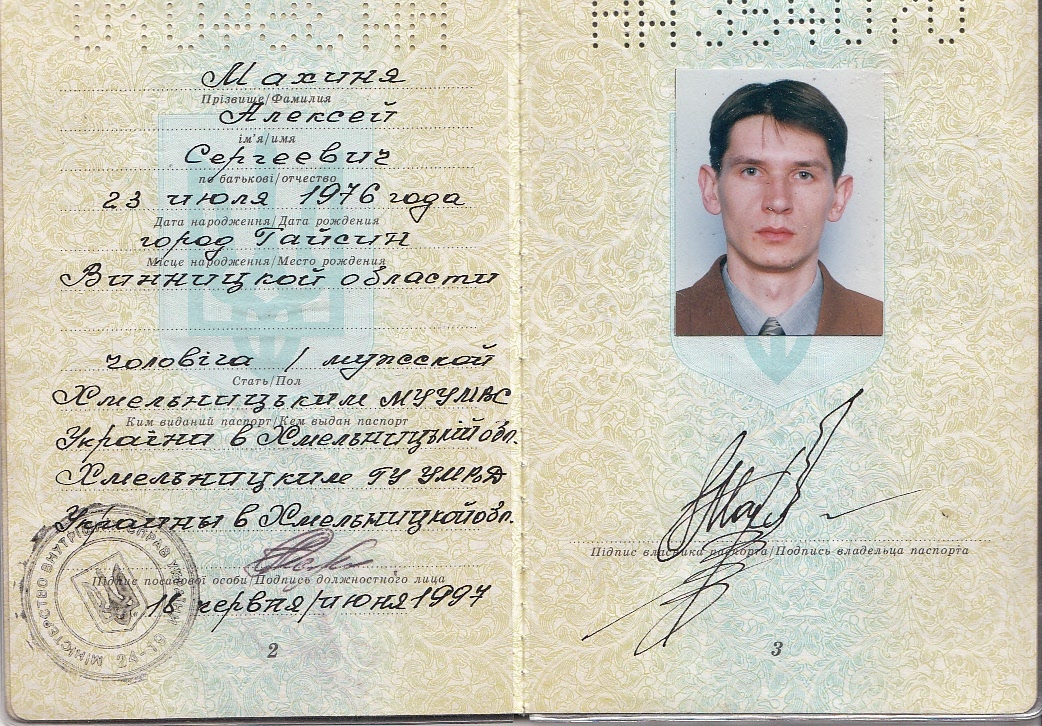 Махиня
Прізвище/Фамилия
Алексей
ім'я/имя
Сергеевич
по батькові/отчество
23 июля 1976 года
Дата народження/Дата рождения
город Гайсин
Місце народження/Место рождения
Винницкой области
чоловіча / мужской
Стать/Пол
Хмельницьким МУ УМВС
Ким виданий паспорт/Кем выдан паспорт
України в Хмельницькій обл.
Хмельницким ГУ УМВД
Украины в Хмельницкой обл.
Підпис посадової особи/Подпись должностного лица
18 червня/июня 1997
МІНІСТЕРСТВО ВНУТРІШНІХ СПРАВ УКРАЇНИ
2
Підпис власника паспорта/Подпись владельца паспорта
3